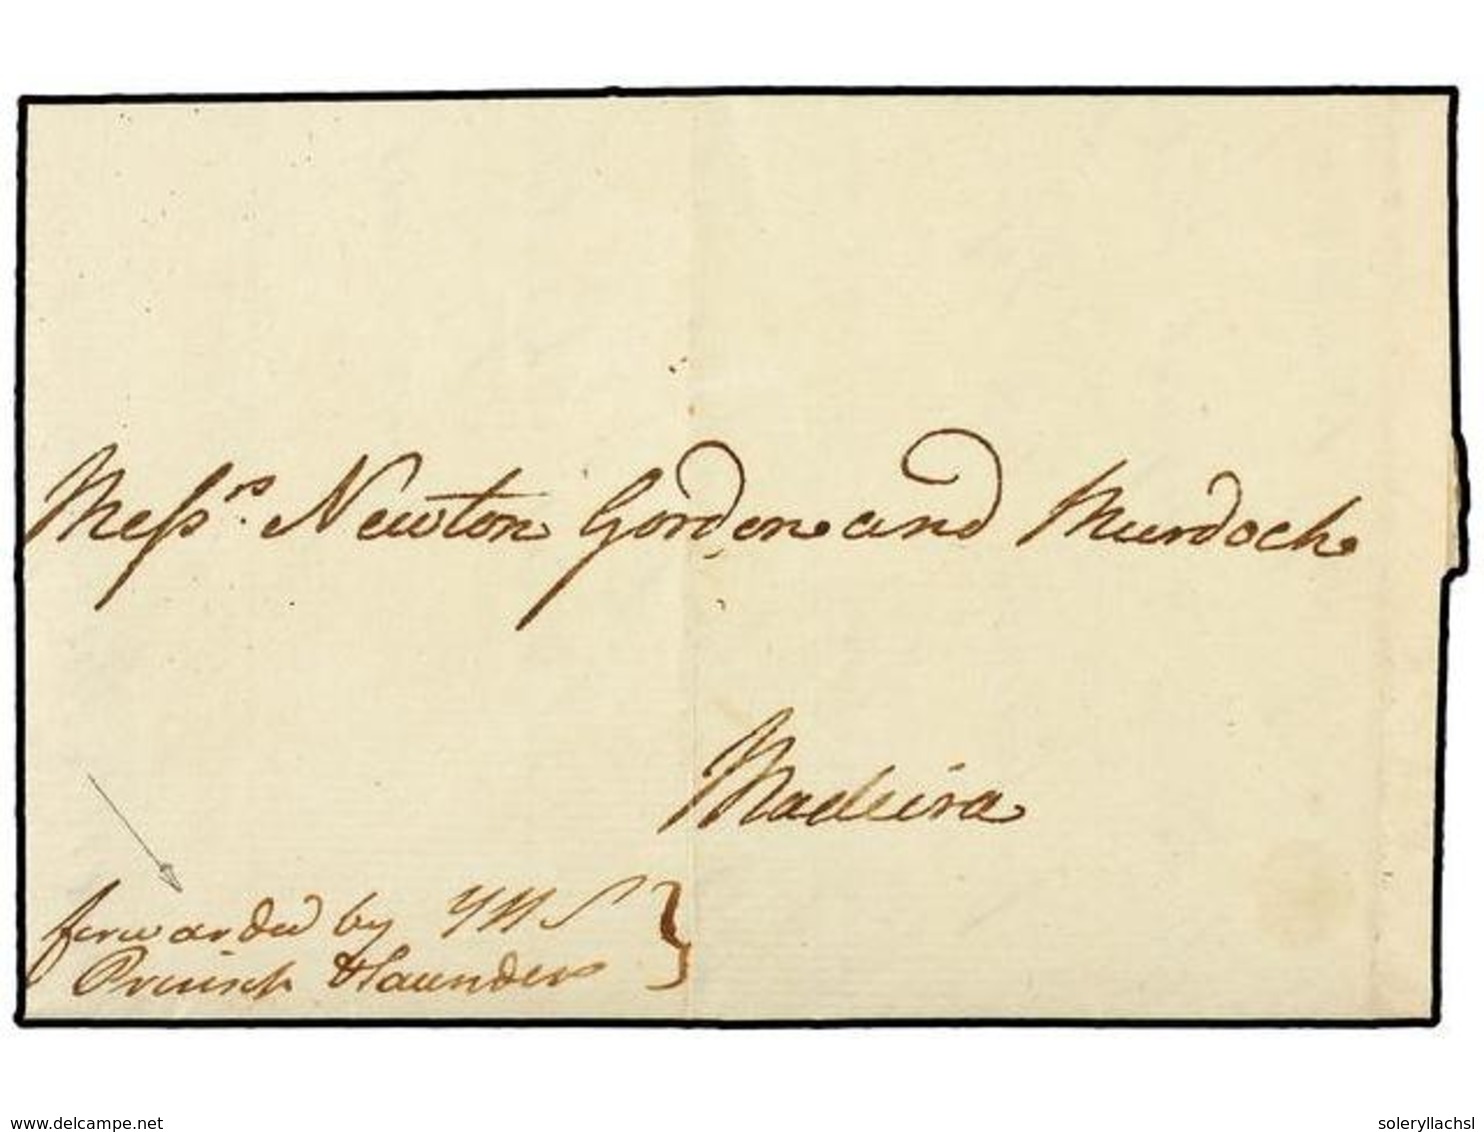 Meſsrs. Newton Gordon and Murdoch
Madeira
forwarded by
& Saunders
delcampe.net
soleryllachsl